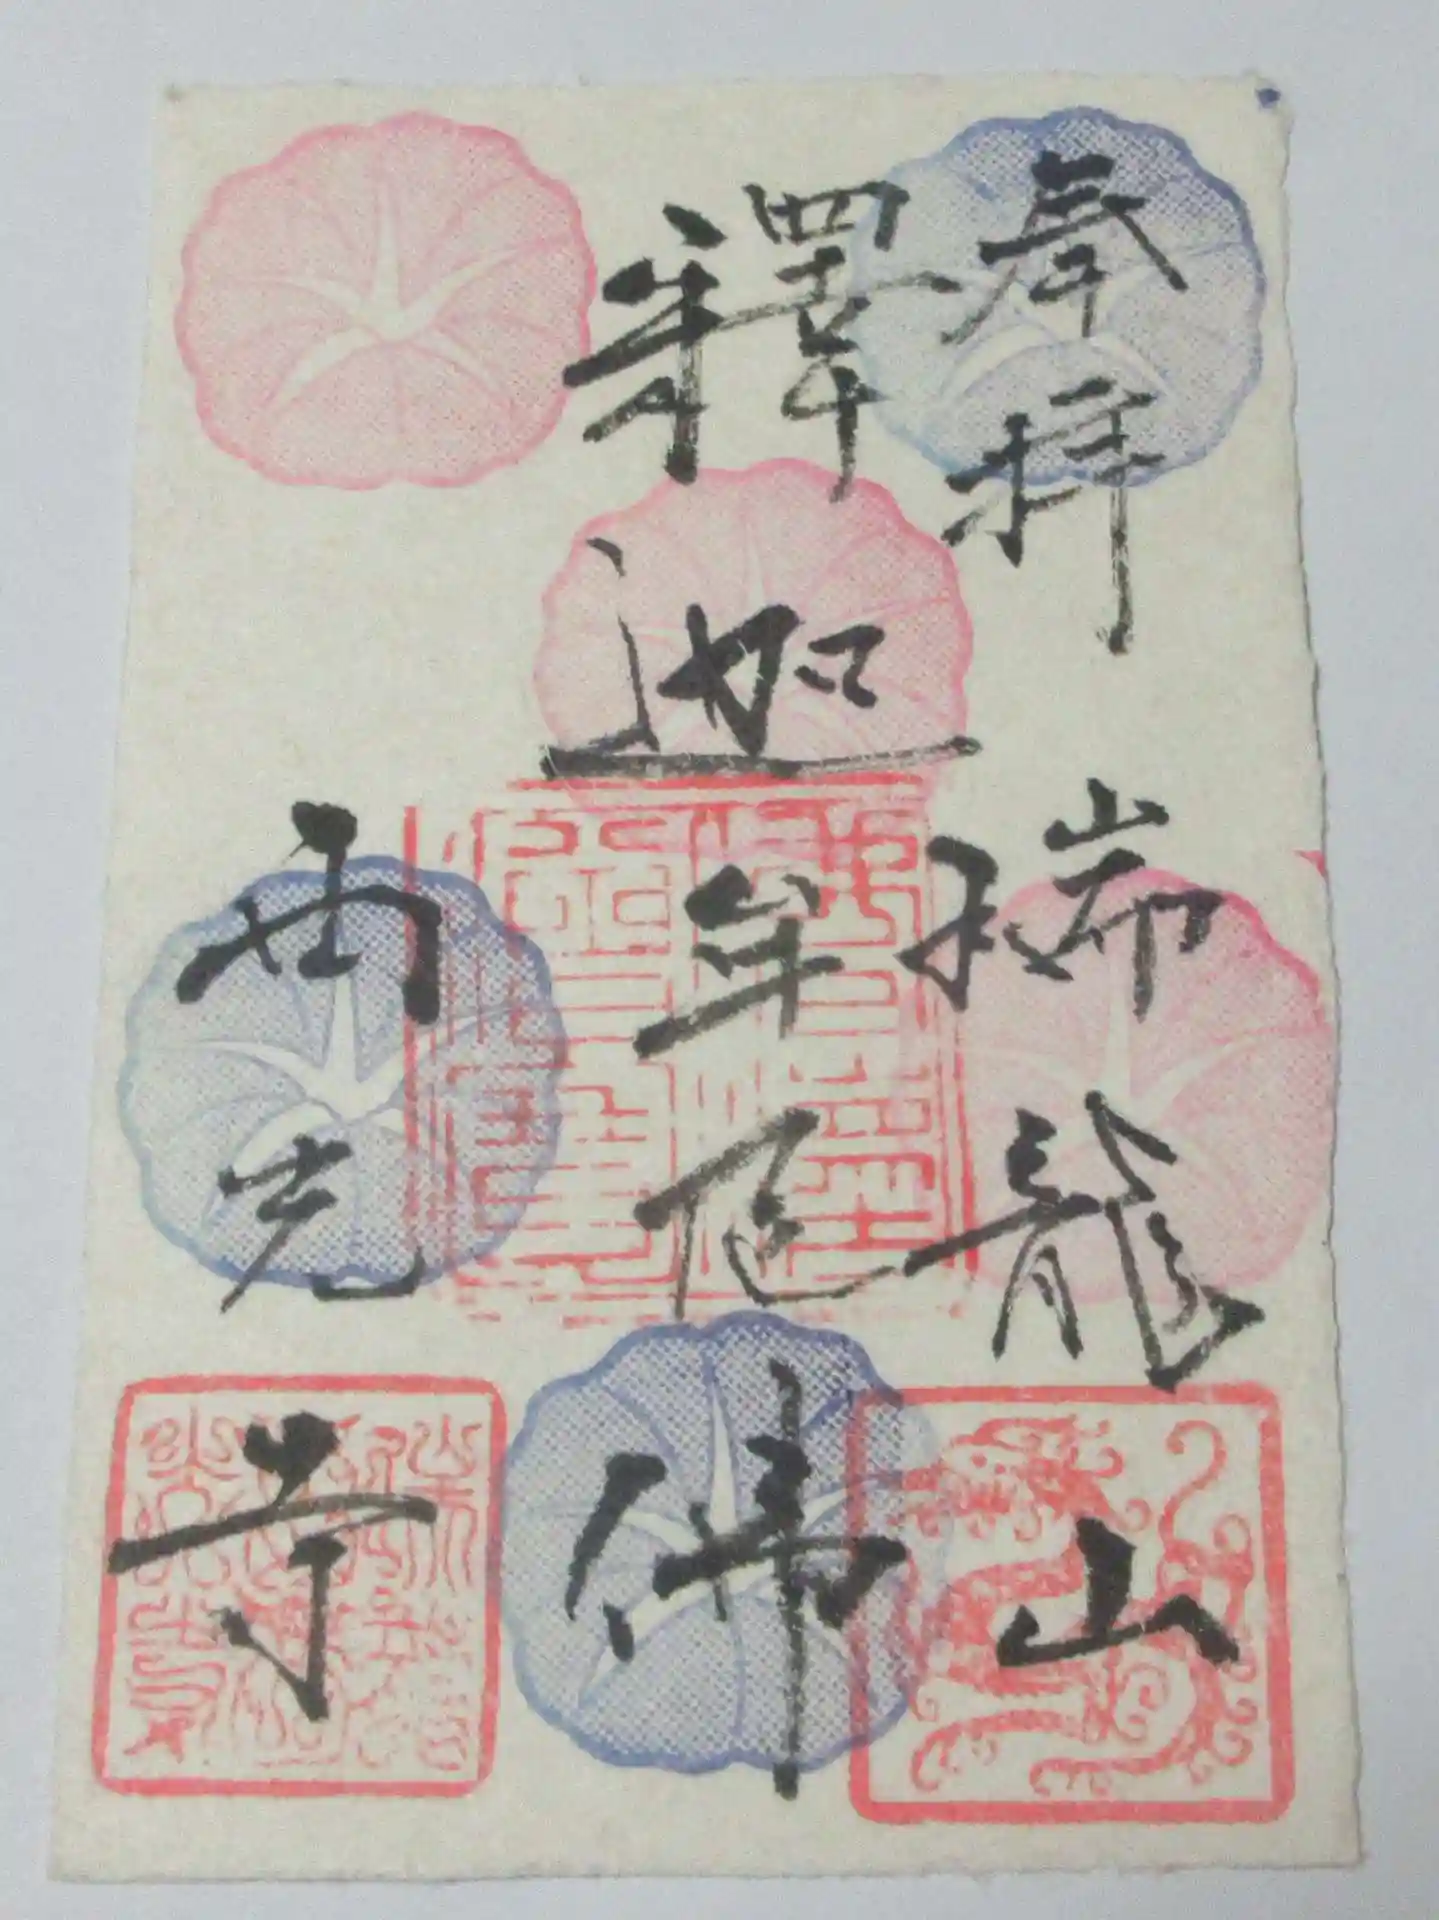 奉拝
瑞龍山
釋迦牟尼佛
光寺